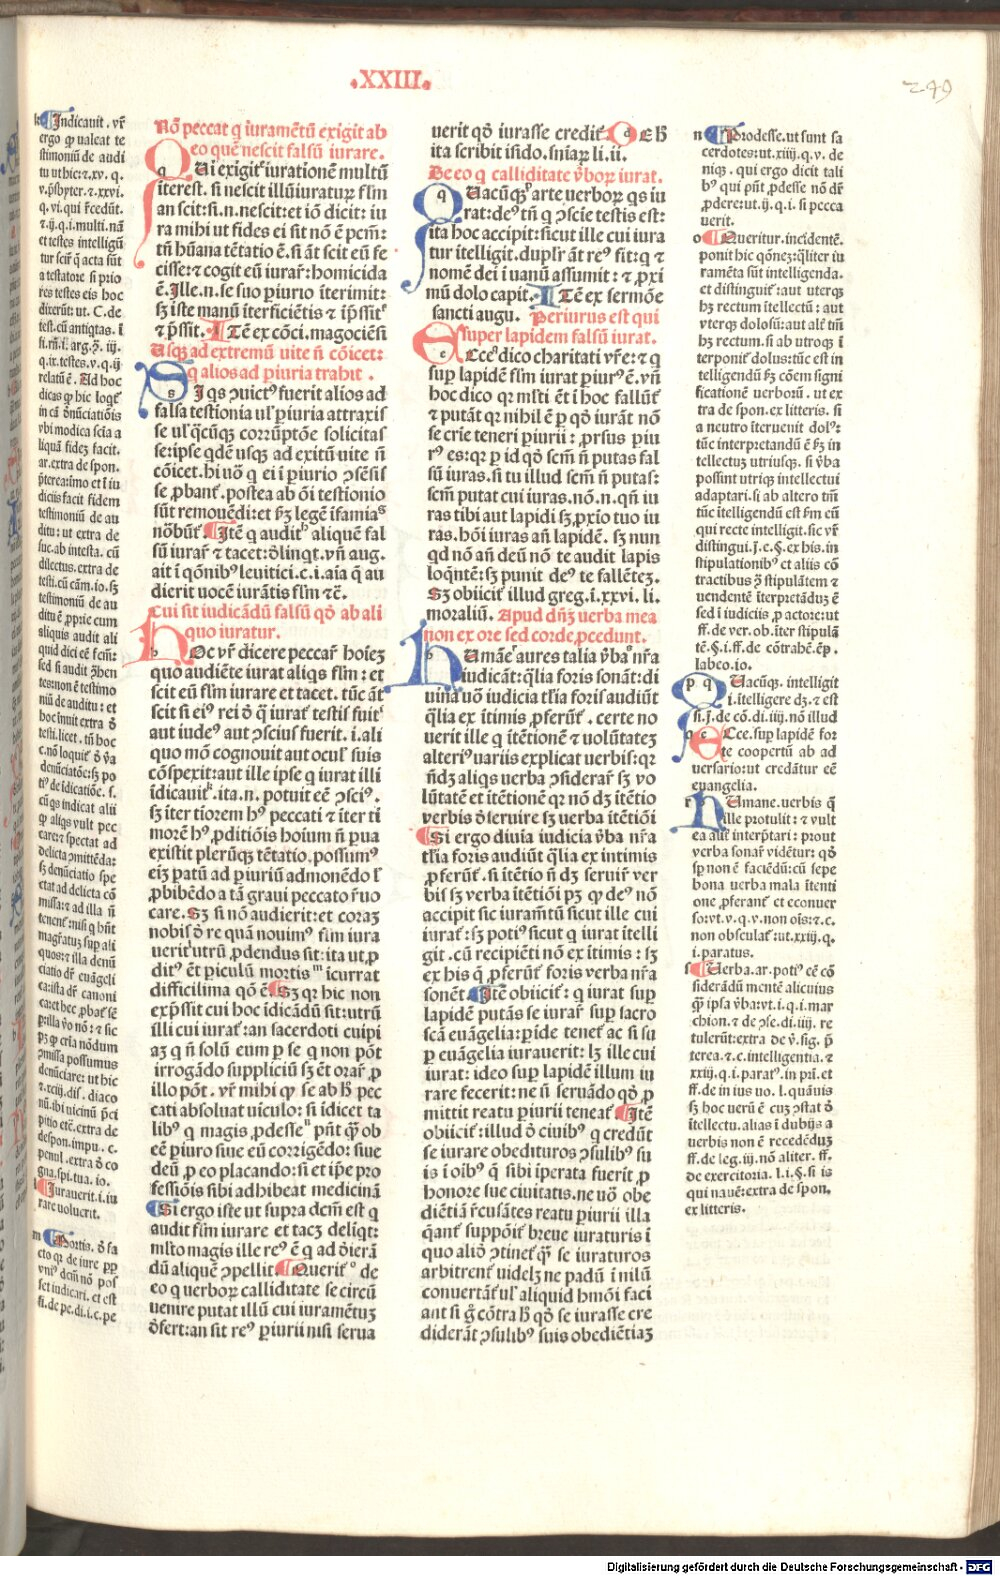 .XXIII.
249
k Indicauit. vr̄
ergo ꝙ ualeat te
stimoniū de audi
tu ut hic: ⁊.xv. q.
v. p̄sbyter. ⁊.xxvi.
q. vi. qui r̄cedūt.
⁊.ij. q. i. multi. nā
et testes intelligū
tur scir̄ q̄ acta sūt
a testatore si prio
res testes eis hoc
dixerūt: ut. C. de
test. cū antiq̄tas. i
relatū ē. Ad hoc
dicas ꝙ hic loqͭ
in cā d̄nūciatiōis
vbi modica scīa a
liquā fideʒ facit.
ar. extra de spon.
p̄terea: imo et ī iu
diciis facit fidem
testimoniū de au
ditu: ut extra de
suc. ab intesta. cū
dilectus. extra de
testi. cū cām. io. sʒ
testimoniū de au
ditu ē ꝓprie cum
aliquis audit ali
quid dici eē fcm̄:
sed si audit
tes: non ē testimo
niū de auditu: et
hoc inuit extra d̄
testi. licet. tn̄ hoc
c. nō loquiͭ d̄ v̄a
denūciatōe: sʒ po
tiꝰ de īdicatiōe. s.
cū qs indicat alii
ꝙ aliqs vult pec
care: ⁊ spectat ad
delicta ꝯmittēda:
sʒ denūciatio spe
ctat ad delicta cō
missa: ⁊ ad illa n̄
tenenͭ: nisi q hn̄t
magr̄atuʒ sup ali
quos: ⁊ illa denū
ciatio dr̄ euāgeli
ca: ista dr̄ canoni
ca
ꝯmissa possumus
denūciare: ut hic
⁊. xciij. dis. diaco
nū. ibi uicinū p̄ci
pitio etē. extra de
despon. impu. c.
penul. extra d̄ co
gna. spi. tua. io.
l Iurauerit. i. iu
rare uoluerit.
m Mortis. d̄ fa
cto qr de iure ꝑp
vniꝰ dcm̄ nō pos
set iudicari. et est
si. de pe. di. i. c. pe
Nō peccat q iuramētū exigit ab
eo quē nescit falsū iurare.
q Ui exigiͭ iurationem multū
iterest. si nescit illū iuraturꝫ flm̄
an scit: si. n. nescit: et iō dicit: iu
ra mihi ut fides ei sit nō ē pcm̄:
tn̄ hūana tētatio ē. si āt scit eū fe
cisse: ⁊ cogit eū iurar̄: homicida
ē. Ille. n. se suo piurio īterimit:
sʒ iste manū īterficiētis ⁊ īp̄ssit
⁊ p̄ssit. Itē ex cōci. magociēsi
Usqʒ ad extremū uite n̄ cōicet:
q alios ad piuria trahit.
s I qs ꝯuictꝰ fuerit alios ad
falsa testīonia ul' piuria attraxis
se ul' q̄cūqʒ corrūptōe solicitas
se: ipse qdē usqʒ ad exitū uite n̄
cōicet. hi uō q ei ī piurio ꝯsēsis
se ꝓbanͭ. postea ab ōi testīonio
sūt remouēdi: et ẜʒ legē īfamiaˢ
nōbūͭ. Itē q auditʰ aliquē fal
sū iurar̄ ⁊ tacet: d̄linqt. vn̄ aug.
ait ī qōnibꝰ leuitici. c. i. aīa q̄ au
dierit uocē iurātis flm̄ ⁊ē.
Cui sit iudicādū falsū qō ab ali
quo iuratur.
h Oc vr̄ dicere peccar̄ hoīeʒ
quo audiēte iurat aliqs flm̄: et
scit eū flm̄ iurare et tacet. tūc āt
scit si eiꝰ rei d̄ q̄ iuraͭ testis fuitⁱ
aut uideͭ aut ꝯscius fuerit. i. ali
quo mō cognouit aut oculꝭ suis
cōspexit: aut ille ipse q iurat illi
īdicauitᵏ. ita. n. potuit eē ꝯsciꝰ.
sʒ īter tiorem hꝰ peccati ⁊ īter ti
morē hꝰ ꝓditiōis hoīum n̄ pua
existit plerūqʒ tētatio. possumꝰ
eiʒ patū ad piuriū admonēdo l'
ꝓhibēdo a tā graui peccato r̄uo
care. Sʒ si nō audierit: et coraʒ
nobis d̄ re quā nouimꝰ flm̄ iura
ueritˡ utrū ꝓdendus sit: ita ut ꝓ
ditꝰ ēt piculū mortis ᵐ īcurrat
difficilima qō ē. Sʒ qr hic non
exp̄ssit cui hoc īdicādū sit: utrū
illi cui iuraͭ: an sacerdoti cuipi
aʒ q n̄ solū eum p se q non pōt
irrogādo suppliciū sʒ ēt orar̄ ꝓ
illo pōt. vr̄ mihi ꝙ se ab h̄ pec
cati absoluat uīculo: si īdicet ta
libꝰ q magis ꝓdesseⁿ pn̄t q̄ ob
eē piuro siue eū corrigēdo: siue
deū ꝓ eo placando: si et ipe pro
fessiōis sibi adhibeat medicinā
Si ergo iste ut supra dcm̄ est q
audit flm̄ iurare et tacʒ deliqt:
mlto magis ille reꝰ ē q ad d̄ierā
dū aliquē ꝯpellit Queriͭᵒ de
eo q uerboꝝ calliditate se circū
uenire putat illū cui iuramētuʒ
d̄fert: an sit reꝰ piurii nisi serua
uerit qō iurasse crediͭ. d E h̄
ita scribit isido. sniaꝝ li. ii.
De eo q calliditate v̄boꝝ iurat.
q Uacūqʒᵖ arte uerboꝝ qs iu
rat: deꝰ tn̄ q ꝯscie testis est:
ita hoc accipit: sicut ille cui iura
tur ītelligit. duplr̄ āt reꝰ fit: q ⁊
nomē dei ī uanū assumit: ⁊ ꝓxi
mū dolo capit. Itē ex sermōe
sancti augu. Periurus est qui
super lapidem falsū iurat.
e Cceᵠ dico charitati vr̄e: ⁊ q
sup lapidē flm̄ iurat piurꝰ ē. vn̄
hoc dico qr mlti ēt ī hoc falluͭ
⁊ putāt qr nihil ē p qō iurāt nō
se crīe teneri piurii: ꝓrsus piu
rꝰ es: qr p id qō scm̄ n̄ putas fal
sū iuras. si tu illud scm̄ n̄ putas:
scm̄ putat cui iuras. nō. n. qn̄ iu
ras tibi aut lapidi sʒ ꝓxio tuo iu
ras. hōi iuras an̄ lapidē. sʒ nun
qd nō an̄ deū nō te audit lapis
loqn̄tē: sʒ punit deꝰ te fallēteʒ.
Sʒ obiiciͭ illud greg. ī. xxvi. li.
moraliū. Apud dn̄ʒ uerba mea
non ex ore sed corde ꝓcedunt.
h Umāeʳ aures talia v̄baˢ nr̄a
iudicāt: q̄lia foris sonāt: di
uina uō iudicia tl̄ia foris audiūt
q̄lia ex itimis ꝓferūͭ. certe no
uerit ille q itētionē ⁊ uolūtateʒ
alteriꝰ uariis explicat uerbis: qr
n̄dʒ aliqs uerba ꝯsiderar̄ sʒ vo
lūtatē et itētionē qr nō dʒ itētio
verbis d̄seruire sʒ uerba itētiōi
Si ergo diuīa iudicia v̄ba nr̄a
tl̄ia foris audiūt q̄lia ex intimis
ꝓferūͭ. si itētio n̄ dʒ seruir̄ ver
bis sʒ verba itētiōi pʒ ꝙ deꝰ nō
accipit sic iuram̄tū sicut ille cui
iuraͭ: sʒ potiꝰ sicut q iurat ītelli
git. cū recipiēti nō ex itimis: sʒ
ex his q̄ ꝓferūͭ foris verba nr̄a
sonēͭ. Itē obiiciͭ: q iurat sup
lapidē putās se iurar̄ sup sacro
scā euāgelia: p̄ide teneͭ ac si su
p euāgelia iurauerit: lʒ ille cui
iurat: ideo sup lapidē illum iu
rare fecerit: ne ū seruādo qō ꝓ
mittit reatu piurii teneaͭ. Itē
obiiciͭ: illud d̄ ciuibꝰ q credūt
se iurare obedituros ꝯsulibꝰ su
is ī oībꝰ q̄ sibi īperata fuerīt ꝓ
honore sue ciuitatis. ne uō obe
diētiā r̄cusātes reatu piurii illa
q̄anͭ suppōiͭ breue iuraturis ī
quo aliō ꝯtineͭ q̄ se iuraturos
arbitrenͭ uidelʒ ne padū ī nilū
conuertāͭ ul' aliquid hmōi faci
ant si ḡ cōtra h̄ qō se iurasse cre
diderāt ꝯsulibꝰ suis obediētiaʒ
n Prodesse. ut sunt sa
cerdotes: ut. xiiij. q. v. de
niqʒ. qui ergo dicit tali
bꝰ qui pn̄t ꝓdesse nō dr̄
ꝓdere: ut. ij. q. i. si pecca
uerit.
o Queritur. incidentē.
ponit hic qōneʒ: q̄liter iu
ramēta sūt intelligenda.
et distinguiͭ: aut uterqʒ
hʒ rectum itellectū: aut
vterqʒ dolosū: aut alt̄ tm̄
hʒ rectum. si ab utroqʒ ī
terponiͭ dolus: tūc est in
telligendū ẜʒ cōem signi
ficationē uerboꝝ. ut ex
tra de spon. ex litteris. si
a neutro īteruenit dolꝰ:
tūc interpretandū ē ẜʒ in
tellectuʒ utriusqʒ. si v̄ba
possint utriqʒ intellectui
adaptari. si ab altero tm̄
tūc ītelligendū est ẜm eū
qui recte intelligit. sic vr̄
distingui. j. e. §. ex his. in
stipulationibꝰ et aliis cō
tractibus ꝯ̄ stipulātem ⁊
uendentē īterpretādūʒ ē
sed ī iudiciis ꝓ actore: ut
ff. de ver. ob. īter stipulā
tē. §. i. ff. de cōtrahē. ēp.
labeo. io.
p q Uacūqʒ. intelligit
i. ītelligere dʒ. ⁊ est
si. j. de cō. di. iiij. nō illud
q e Cce. sup lapidē for
te coopertū ab ad
uersario: ut credātur eē
euangelia.
r h Umane. uerbis q̄
ille protulit: ⁊ vult
ea aliē interp̄tari: prout
verba sonar̄ vidētur: qō
sp non ē faciēdū: cū sepe
bona uerba mala itenti
one ꝓferanͭ et econuer
so: vt. v. q. v. non oīs: ⁊. c.
non obseruaͭ: ut. xxij. q.
i. paratus.
s Uerba. ar. potiꝰ eē cō
siderādū mentē alicuius
q̄ ipsa v̄ba: vt. i. q. i. mar
chion. ⁊ de ꝯse. di. iiij. re
tulerūt: extra de v̄. sig. p̄
terea. ⁊. c. intelligentia. ⁊
xxiij. q. i. paratꝰ. in pri. et
ff. de in ius uo. l. quāuis
sʒ hoc uerū ē cuʒ ꝯstat d̄
ītellectu. alias ī dubijs a
uerbis non ē recedēduʒ
ff. de leg. iij. nō aliter. ff.
de exercitoria. l. i. §. si is
qui nauē: extra de spon.
ex litteris.
Digitalisierung gefördert durch die Deutsche Forschungsgemeinschaft - DFG